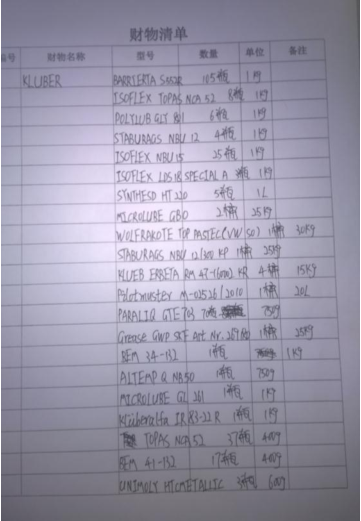 财物清单
号 财物名称 型号 数量 单位 备注
KLUBER BARRIERTA S552R 105瓶 1Kg
ISOFLEX TOPAS NCA 52 8瓶 1Kg
POLYLUB GLY 801 6瓶 1Kg
STABURAGS NBU 12 4瓶 1Kg
ISOFLEX NBU 15 25瓶 1Kg
ISOFLEX LDS 18 SPECIAL A 瓶 1Kg
SYNTHESO HT 220 5瓶 1L
MICROLUBE GBO 2桶 25Kg
WOLFRAKOTE TOP PASTE(VW 50) 1桶 30Kg
STABURAGS NBU 12/300 KP 1桶 25Kg
KLUEB ERBETA RM 47-1600 KR 4桶 15Kg
Pilotmuster M-02526/2010 1桶 20L
PARALIQ GTE 703 70瓶 750g
Grease GWP SKF Art Nr. 1桶 25Kg
BEM 34-132 1瓶 1Kg
ALTEMP Q NB 50 1瓶 750g
MICROLUBE GL 261 1瓶 1Kg
Klüberalfa IR 83-22R 1瓶 1Kg
TOPAS NCA 52 37瓶 400g
BEM 41-132 17瓶 400g
UNIMOLY HTC METALLIC 3瓶 600g